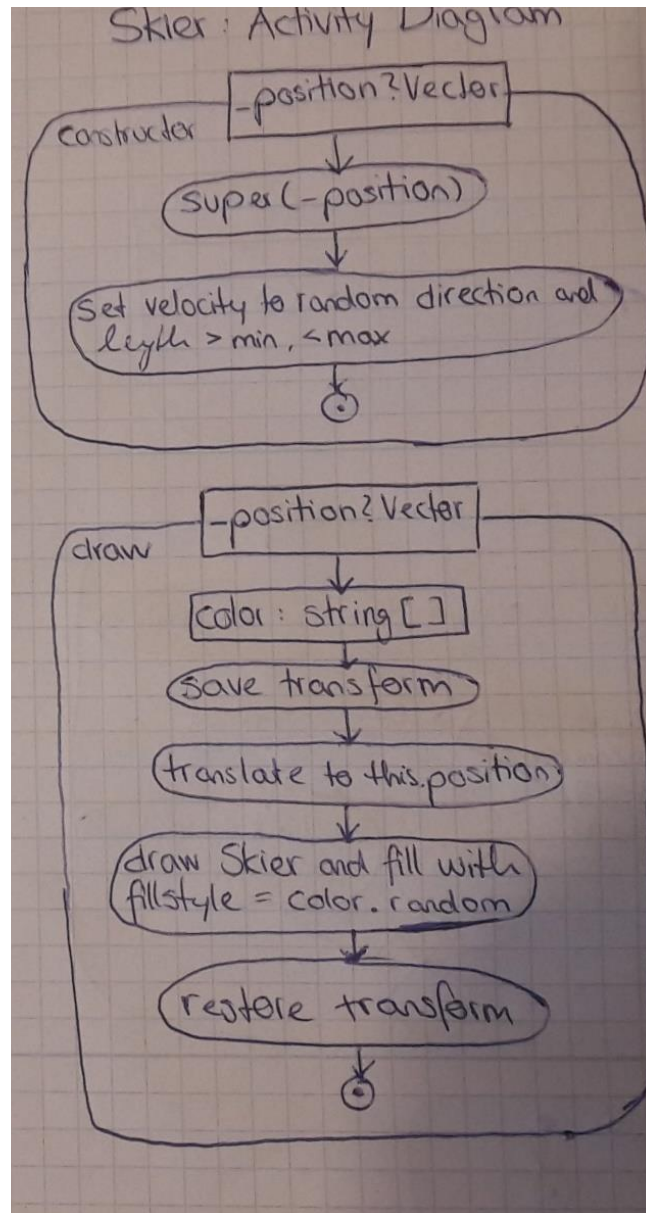 Skier: Activity Diagram
-position?Vector
constructor
super(-position)
set velocity to random direction and
length > min, < max
-position?Vector
draw
color: string[]
save transform
translate to this.position
draw Skier and fill with
fillstyle = color.random
restore transform